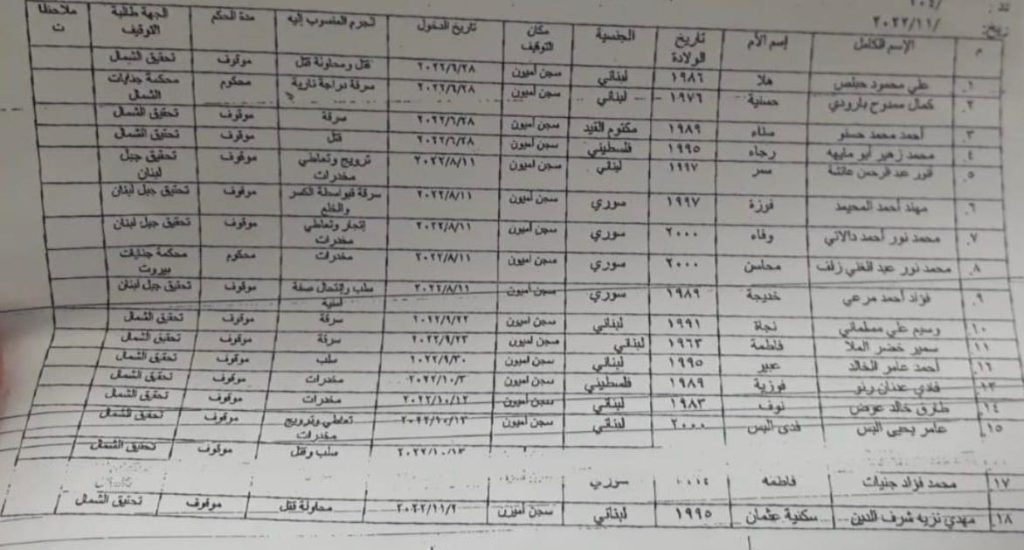 ٢٠٢٢/١١/
م الإسم الكامل إسم الأم تاريخ الولادة الجنسية مكان التوقيف تاريخ الدخول الجرم المنسوب إليه مدة الحكم الجهة طالبة التوقيف ملاحظات
.١ علي محمود حبلص هلا ١٩٨٦ لبناني سجن أميون ٢٠٢٢/٦/٢٨ قتل ومحاولة قتل موقوف تحقيق الشمال
.٢ كمال ممدوح بارودي حسنية ١٩٧٦ لبناني سجن أميون ٢٠٢٢/٦/٢٨ سرقة دراجة نارية محكوم محكمة جنايات الشمال
.٣ أحمد محمد حسنو سناء ١٩٨٩ مكتوم القيد سجن أميون ٢٠٢٢/٦/٢٨ سرقة موقوف تحقيق الشمال
.٤ محمد زهير أبو مايهه رجاء ١٩٩٥ فلسطيني سجن أميون ٢٠٢٢/٦/٢٨ قتل موقوف تحقيق الشمال
.٥ عبد الرحمن عائشة سمر ١٩٩٧ لبناني سجن أميون ٢٠٢٢/٨/١١ ترويج وتعاطي مخدرات موقوف تحقيق جبل لبنان
.٦ مهند أحمد المحيمد فوزة ١٩٩٧ سوري سجن أميون ٢٠٢٢/٨/١١ سرقة بواسطة الكسر والخلع موقوف تحقيق جبل لبنان
.٧ محمد نور أحمد دالاتي وفاء ٢٠٠٠ سوري سجن أميون ٢٠٢٢/٨/١١ إتجار وتعاطي مخدرات موقوف تحقيق جبل لبنان
.٨ محمد نور عبد الغني زلف محاسن ٢٠٠٠ سوري سجن أميون ٢٠٢٢/٨/١١ مخدرات محكوم محكمة جنايات بيروت
.٩ فؤاد أحمد مرعي خديجة ١٩٨٩ سوري سجن أميون ٢٠٢٢/٨/١١ سلب وإنتحال صفة أمنية موقوف تحقيق جبل لبنان
.١٠ وسيم علي مسلماني نجاة ١٩٩١ لبناني سجن أميون ٢٠٢٢/٩/٢٢ سرقة موقوف تحقيق الشمال
.١١ سمير خضر الملا فاطمة ١٩٦٣ لبناني سجن أميون ٢٠٢٢/٩/٢٣ سرقة موقوف تحقيق الشمال
.١٢ أحمد عامر الخالد عبير ١٩٩٥ لبناني سجن أميون ٢٠٢٢/٩/٣٠ سلب موقوف تحقيق الشمال
.١٣ فادي عدنان رنو فوزية ١٩٨٩ فلسطيني سجن أميون ٢٠٢٢/١٠/٣ مخدرات موقوف تحقيق الشمال
.١٤ طارق خالد عوض نوف ١٩٨٣ لبناني سجن أميون ٢٠٢٢/١٠/١٢ مخدرات موقوف تحقيق الشمال
.١٥ عامر يحيى البس فدى البس ٢٠٠٠ لبناني سجن أميون ٢٠٢٢/١٠/١٣ تعاطي وترويج مخدرات موقوف تحقيق الشمال
٢٠٢٢/١٠/١٣ سلب وقتل موقوف تحقيق الشمال
.١٧ محمد فؤاد جنيات فاطمه سوري
.١٨ مهدي نزيه شرف الدين سكنية عثمان ١٩٩٥ لبناني سجن أميون ٢٠٢٢/١١/٢ محاولة قتل موقوف تحقيق الشمال